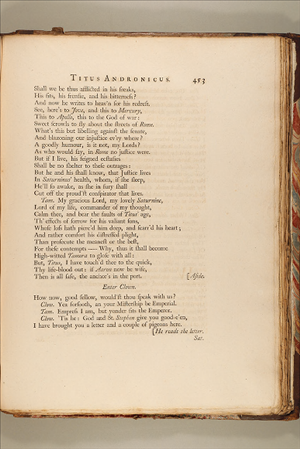 TITUS ANDRONICUS. 483
Shall we be thus afflicted in his freaks,
His fits, his frenzie, and his bitterness?
And now he writes to heav'n for his redress.
See, here's to Jove, and this to Mercury,
This to Apollo, this to the God of war:
Sweet scrowls to fly about the streets of Rome.
What's this but libelling against the senate,
And blazoning our injustice ev'ry where?
A goodly humour, is it not, my Lords?
As who would say, in Rome no justice were.
But if I live, his feigned ecstasies
Shall be no shelter to these outrages:
But he and his shall know, that Justice lives
In Saturninus' health, whom, if she sleep,
He'll so awake, as she in fury shall
Cut off the proud'st conspirator that lives.
Tam. My gracious Lord, my lovely Saturnine,
Lord of my life, commander of my thought,
Calm thee, and bear the faults of Titus' age,
Th' effects of sorrow for his valiant sons,
Whose loss hath pierc'd him deep, and scarr'd his heart;
And rather comfort his distressed plight,
Than prosecute the meanest or the best,
For these contempts — Why, thus it shall become
High-witted Tamora to glose with all:
But, Titus, I have touch'd thee to the quick,
Thy life-blood out: if Aaron now be wise,
Then is all safe, the anchor's in the port. [Aside.
Enter Clown.
How now, good fellow, would'st thou speak with us?
Clow. Yea forsooth, an your Mistership be Emperial.
Tam. Empress I am, but yonder sits the Emperor.
Clow. 'Tis he: God and St. Stephen give you good-e'en,
I have brought you a letter and a couple of pigeons here.
[He reads the letter.
Sat.